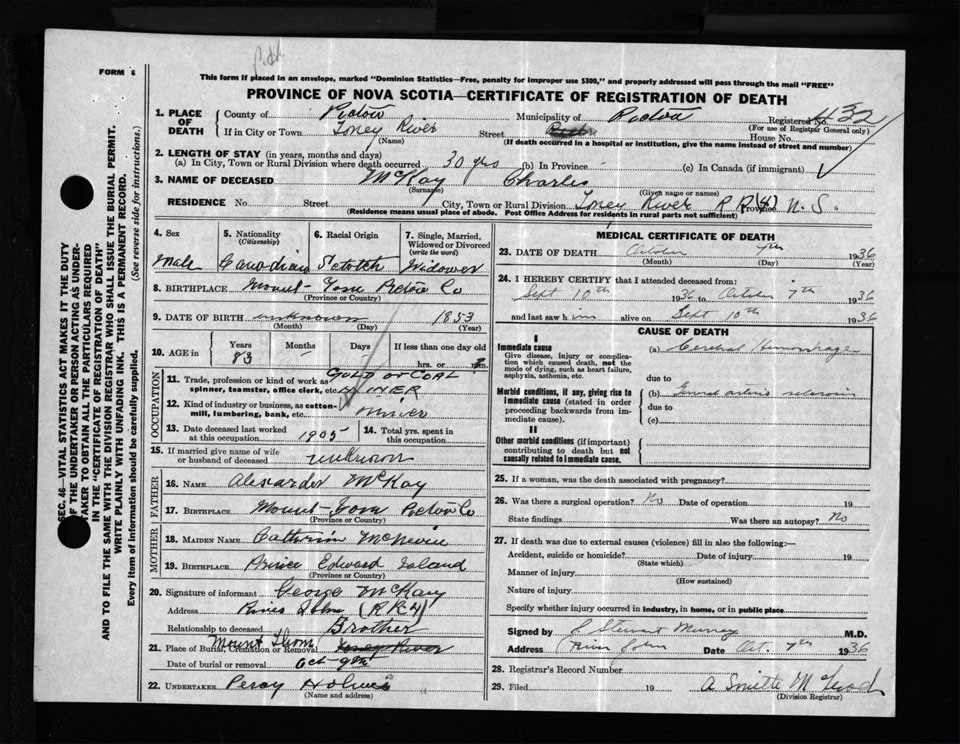 FORM 6
This form if placed in an envelope, marked "Dominion Statistics—Free, penalty for improper use $300," and properly addressed will pass through the mail "FREE"
PROVINCE OF NOVA SCOTIA—CERTIFICATE OF REGISTRATION OF DEATH
SEC. 46—VITAL STATISTICS ACT MAKES IT THE DUTY
OF THE UNDERTAKER OR PERSON ACTING AS UNDER-
TAKER TO OBTAIN ALL THE PARTICULARS REQUIRED
IN THE "CERTIFICATE OF REGISTRATION OF DEATH"
AND TO FILE THE SAME WITH THE DIVISION REGISTRAR WHO SHALL ISSUE THE BURIAL PERMIT.
WRITE PLAINLY WITH UNFADING INK. THIS IS A PERMANENT RECORD.
Every item of Information should be carefully supplied. (See reverse side for instructions.)
1. PLACE OF DEATH
County of Pictou Municipality of Pictou Registered No. 432
(For use of Registrar General only)
If in City or Town Toney River Street House No.
(Name) (If death occurred in a hospital or institution, give the name instead of street and number)
2. LENGTH OF STAY (in years, months and days)
(a) In City, Town or Rural Division where death occurred 30 yrs (b) In Province (c) In Canada (if immigrant)
3. NAME OF DECEASED McKay Charles
(Surname) (Given name or names)
RESIDENCE No Street City, Town or Rural Division Toney River R R (4) Province N. S.
(Residence means usual place of abode. Post Office Address for residents in rural parts not sufficient)
4. Sex Male
5. Nationality (Citizenship) Canadian
6. Racial Origin Scotch
7. Single, Married, Widowed or Divorced (write the word) Widower
8. BIRTHPLACE Mount-Tom Pictou Co
(Province or Country)
9. DATE OF BIRTH unknown 1853
(Month) (Day) (Year)
10. AGE in Years 83 Months Days If less than one day old
hrs. or min.
OCCUPATION
11. Trade, profession or kind of work as spinner, teamster, office clerk, etc. GOLD or COAL MINER
12. Kind of industry or business, as cotton-mill, lumbering, bank, etc. Miner
13. Date deceased last worked at this occupation 1905
14. Total yrs. spent in this occupation
15. If married give name of wife or husband of deceased unknown
FATHER
16. NAME Alexander McKay
17. BIRTHPLACE Mount-Tom Pictou Co
(Province or Country)
MOTHER
18. MAIDEN NAME
19. BIRTHPLACE Prince Edward Island
(Province or Country)
20. Signature of informant George McKay
Address River John (R R 4)
Relationship to deceased Brother
21. Place of Burial, Cremation or Removal Mount Thom Toney River
Date of burial or removal Oct-9th
22. UNDERTAKER Percy Holmes
(Name and address)
MEDICAL CERTIFICATE OF DEATH
23. DATE OF DEATH October 7th 1936
(Month) (Day) (Year)
24. I HEREBY CERTIFY that I attended deceased from:
Sept 10th 1936 to October 7th 1936
and last saw him alive on Sept 10th 1936
CAUSE OF DEATH
I
Immediate cause
Give disease, injury or complication which caused death, not the mode of dying, such as heart failure, asphyxia, asthenia, etc.
(a) Cerebral Hemorrhage
due to
Morbid conditions, if any, giving rise to immediate cause (stated in order proceeding backwards from immediate cause).
(b) General arterio sclerosis
due to
(c)
II
Other morbid conditions (if important) contributing to death but not causally related to immediate cause.
25. If a woman, was the death associated with pregnancy?
26. Was there a surgical operation? No Date of operation 19
State findings Was there an autopsy? No
27. If death was due to external causes (violence) fill in also the following:—
Accident, suicide or homicide? Date of injury 19
(State which)
Manner of injury
(How sustained)
Nature of injury
Specify whether injury occurred in industry, in home, or in public place
Signed by S Stewart Murray M.D.
Address River John Date Oct. 7th 1936
28. Registrar's Record Number
29. Filed 19 A Smith McLeod
(Division Registrar)